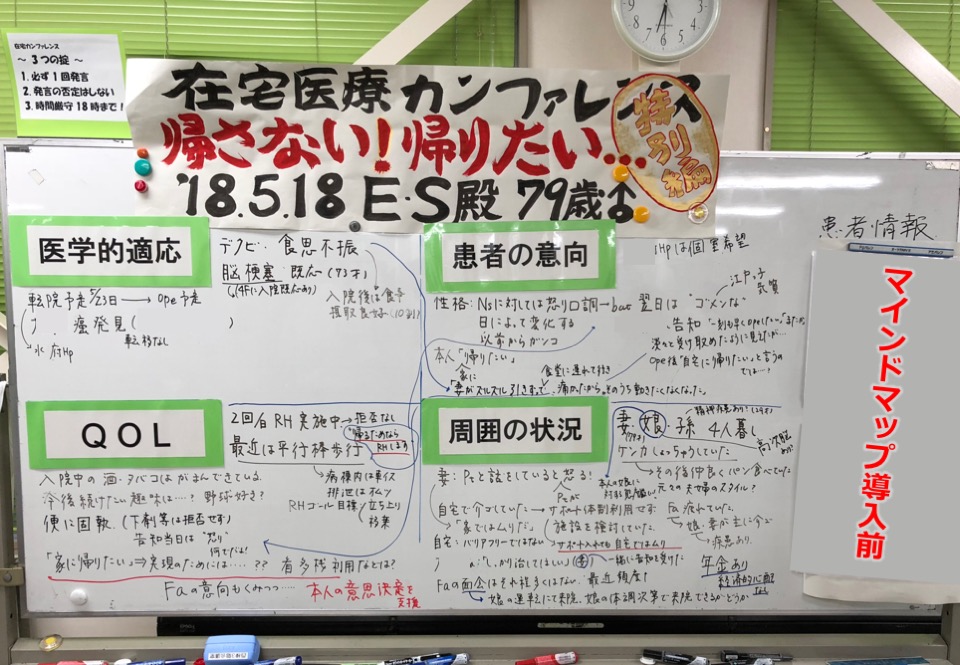 在宅カンファレンス
～ 3つの掟 ～
1. 必ず1回発言
2. 発言の否定はしない
3. 時間厳守 18時まで！
在宅医療 カンファレンス
帰さない！帰りたい…
'18.5.18 E・S殿 79歳♂
患者情報
マインドマップ導入前
医学的適応
食思不振
脳梗塞 既応 (73才)
(4Fに入院既応あり)
入院後は食事
摂取良好 (10割)
転院予定 5/23日 → Ope予定
癌発見 (
転移なし
)
水府Hp
患者の意向
Hpは個室希望
性格：Nsに対しては怒り口調 → but 翌日は "ゴメンな"
江戸っ子
気質
日によって変化する
以前からガンコ
告知
淡々と受け取めたように見えたが…
Ope後 "自宅に帰りたい" と言うの
では…?
本人「帰りたい」
家に
食堂に連れて行き
「妻がズルズル引きずって、痛かったから。そのうち動きたくなくなった。
QOL
2回/日 RH 実施中 → 拒否なし
"帰るためなら
RHします
最近は平行棒歩行
病棟内は車イス
排泄はオムツ
RHゴール目標 / 立ち上り
移乗
入院中の酒・タバコはがまんできている
今後続けたい趣味は…? 野球好き?
便に固執 (下剤等は拒否せず)
告知当日は "怒り"
何でだよ!
「家に帰りたい」⇒ 実現のためには……?? 有多機利用などは?
Faの意向もくみつつ… 本人の意思決定を
支援
周囲の状況
妻・娘・孫 4人暮し
ケンカしょっちゅうしていた
その後仲良くパン食べていた
元々の夫婦のスタイル?
妻：Ptと話をしていると怒る
Ptが
自宅で介コしていた → サポート体制利用せず
Fa 疲れていた
「家ではムリだ」
施設を検討していた
娘・妻が主に介コ
疾患あり
自宅：バリアフリーではない
サポート入れても自宅ではムリ
「しっかり治してほしい」
一緒に告知を受けた
年金あり
経済的心配
なし
Faの面会はそれ程多くはない 最近頻度↑
娘の運転にて来院、娘の体調次第で来院できるかどうか